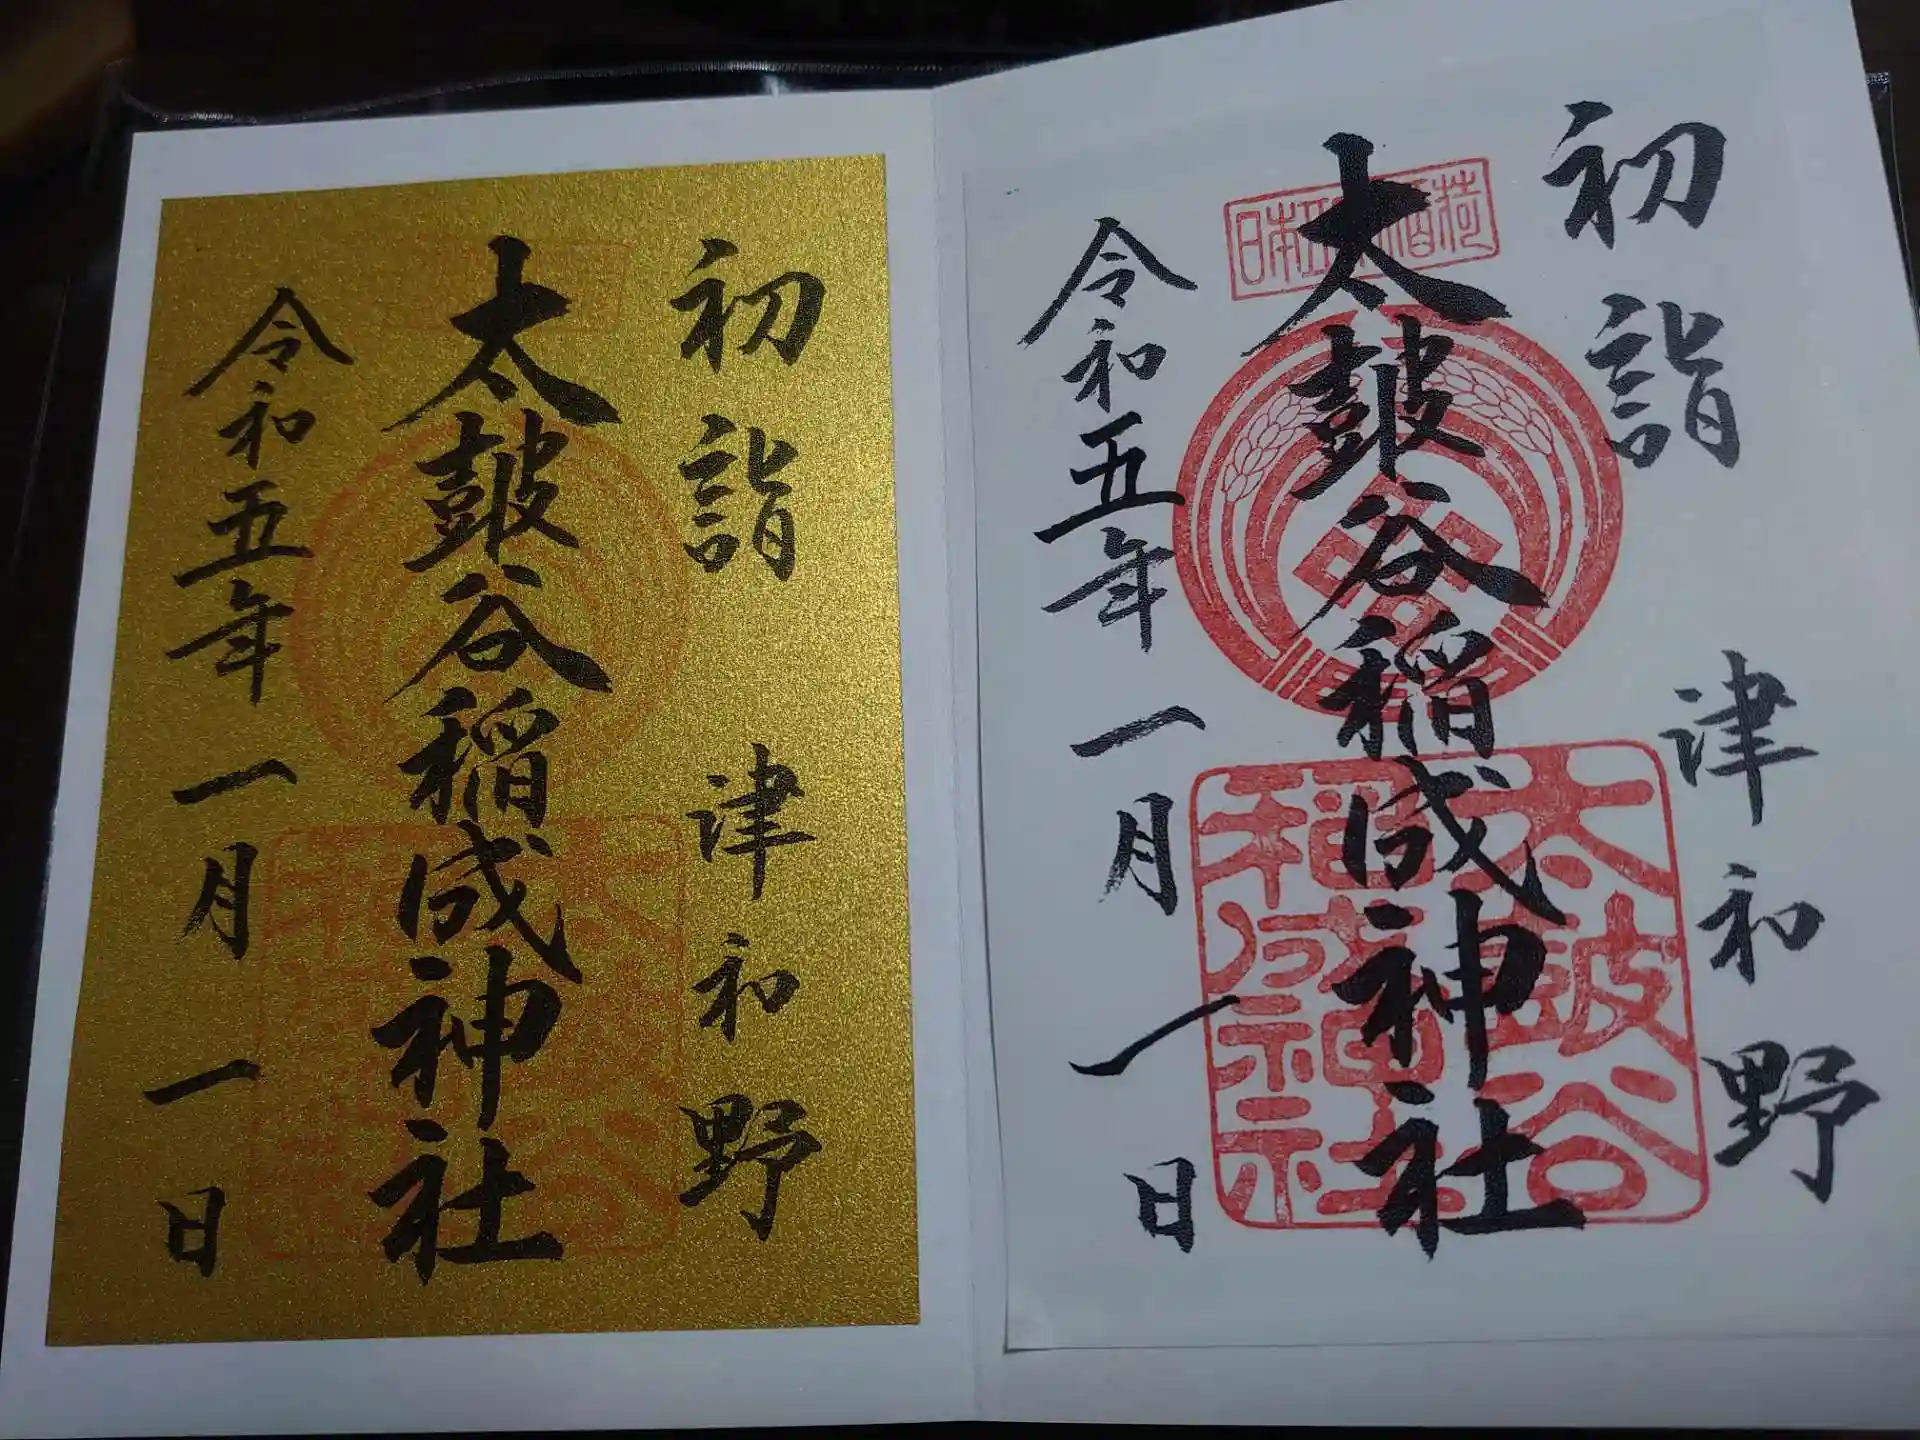 初詣 津和野
太皷谷稲成神社
令和五年一月一日
日本五大稲荷
太皷谷
稲成神社
初詣 津和野
太皷谷稲成神社
令和五年一月一日